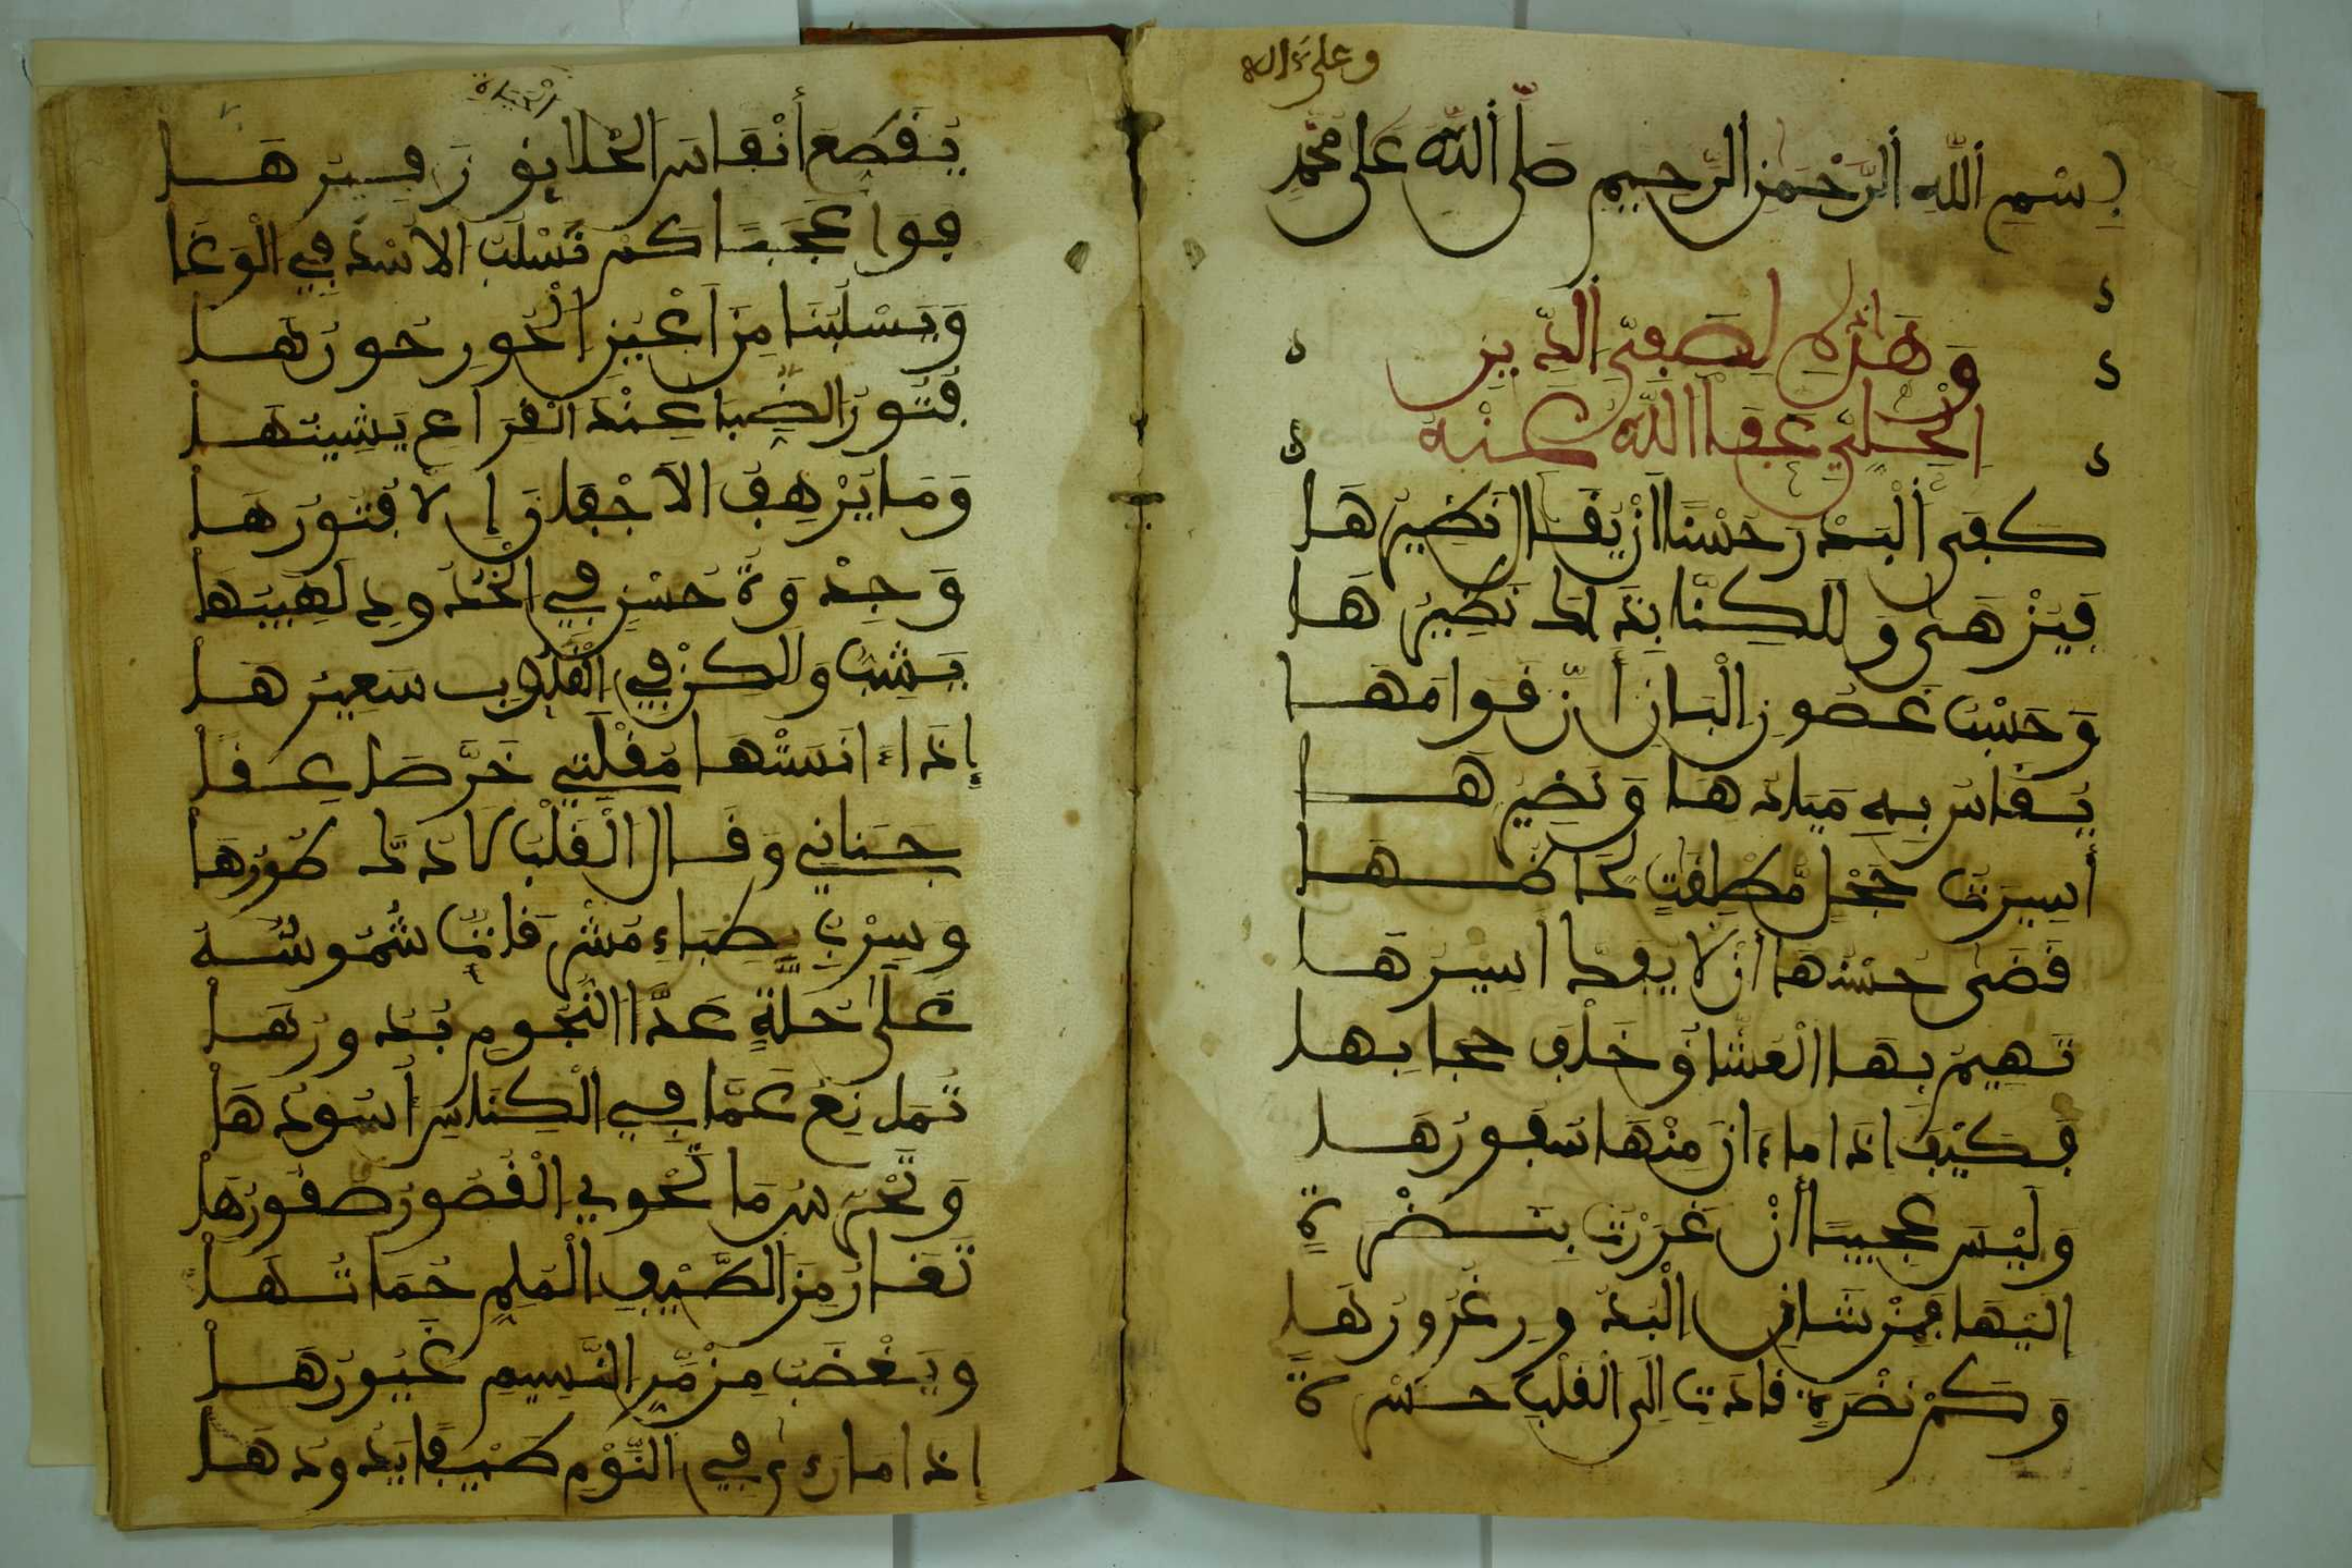 وعلى ءاله
بِسْمِ اللَّهِ الرَّحْمَنِ الرَّحِيمِ صَلَّى اللَّهُ عَلَى مُحَمَّدٍ
وَهَذِهِ لِصَفِيِّ الدِّينِ
الْحِلِّيِّ عَفَا اللَّهُ عَنْهُ
كَفَى الْبَدْرَ حُسْنًا أَنْ يُقَالَ نَظِيرُهَا
فَيُزْهَى وَلَكِنَّا بِذَاكَ نَضِيرُهَا
وَحَسْبُ غُصُونِ الْبَانِ أَنَّ قَوَامَهَا
يُقَاسُ بِهِ مَيَّادُهَا وَنَضِيرُهَا
أَسِيرَةُ حِجْلٍ مُطْلَقَاتٍ لِحَاظُهَا
قَضَى حُسْنُهَا أَنْ لَا يُفَكَّ أَسِيرُهَا
تَهِيمُ بِهَا الْعُشَّاقُ خَلْفَ حِجَابِهَا
فَكَيْفَ إِذَا مَا ءَانَ مِنْهَا سُفُورُهَا
وَلَيْسَ عَجِيبًا أَنْ غُرِرْتُ بِنَظْرَةٍ
إِلَيْهَا فَمِنْ شَأْنِ الْبُدُورِ غُرُورُهَا
وَكَمْ نَظْرَةٍ قَادَتْ إِلَى الْقَلْبِ حَسْرَةً
يُقَطِّعُ أَنْفَاسَ الْحَيَاةِ زَفِيرُهَا
فَوَا عَجَبًا كَمْ نَسْلُبُ الْأُسْدَ فِي الْوَغَا
وَيَسْلُبُنَا مِنْ أَعْيُنِ الْحُورِ حُورُهَا
فُتُورُ الظُّبَا عِنْدَ الْقِرَاعِ يَشِينُهَا
وَمَا يُرْهِفُ الْأَجْفَانَ إِلَّا فُتُورُهَا
وَجِذْوَةُ حُسْنٍ فِي الْخُدُودِ لَهِيبُهَا
يَشِبُّ وَلَكِنْ فِي الْقُلُوبِ سَعِيرُهَا
إِذَا ءَانَسَتْهَا مُقْلَتِي خَرَّ صَاعِقًا
جَنَانِي وَقَالَ الْقَلْبُ لَا دُكَّ طُورُهَا
وَسِرْبِ ظِبَاءٍ مُشْرِقَاتٍ شُمُوسُهُ
عَلَى حُلَّةٍ عَدَّ النُّجُومِ بُدُورُهَا
تُمَانِعُ عَمَّا فِي الْكِنَاسِ أُسُودُهَا
وَتَحْرُسُ مَا تَحْوِي الْقُصُورُ صُقُورُهَا
تَغَارُ مِنَ الطَّيْفِ الْمُلِمِّ حُمَاتُهَا
وَيَغْضَبُ مِنْ مَرِّ النَّسِيمِ غَيُورُهَا
إِذَا مَا رَءَى فِي النَّوْمِ طَيْفًا يَذُودُهَا